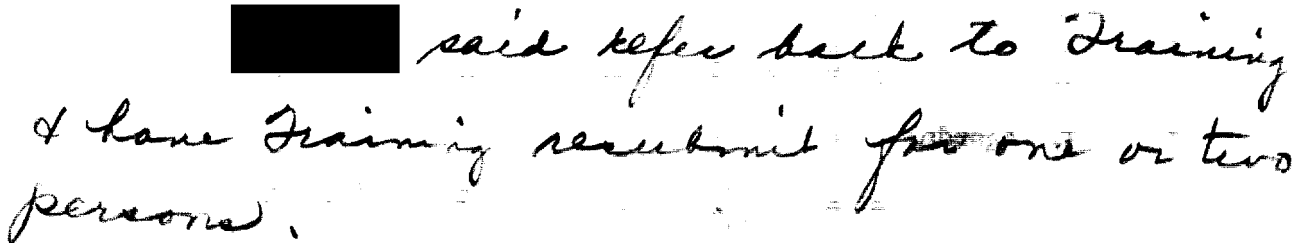 said refer back to Training
& have Training resubmit for one or two
persons.